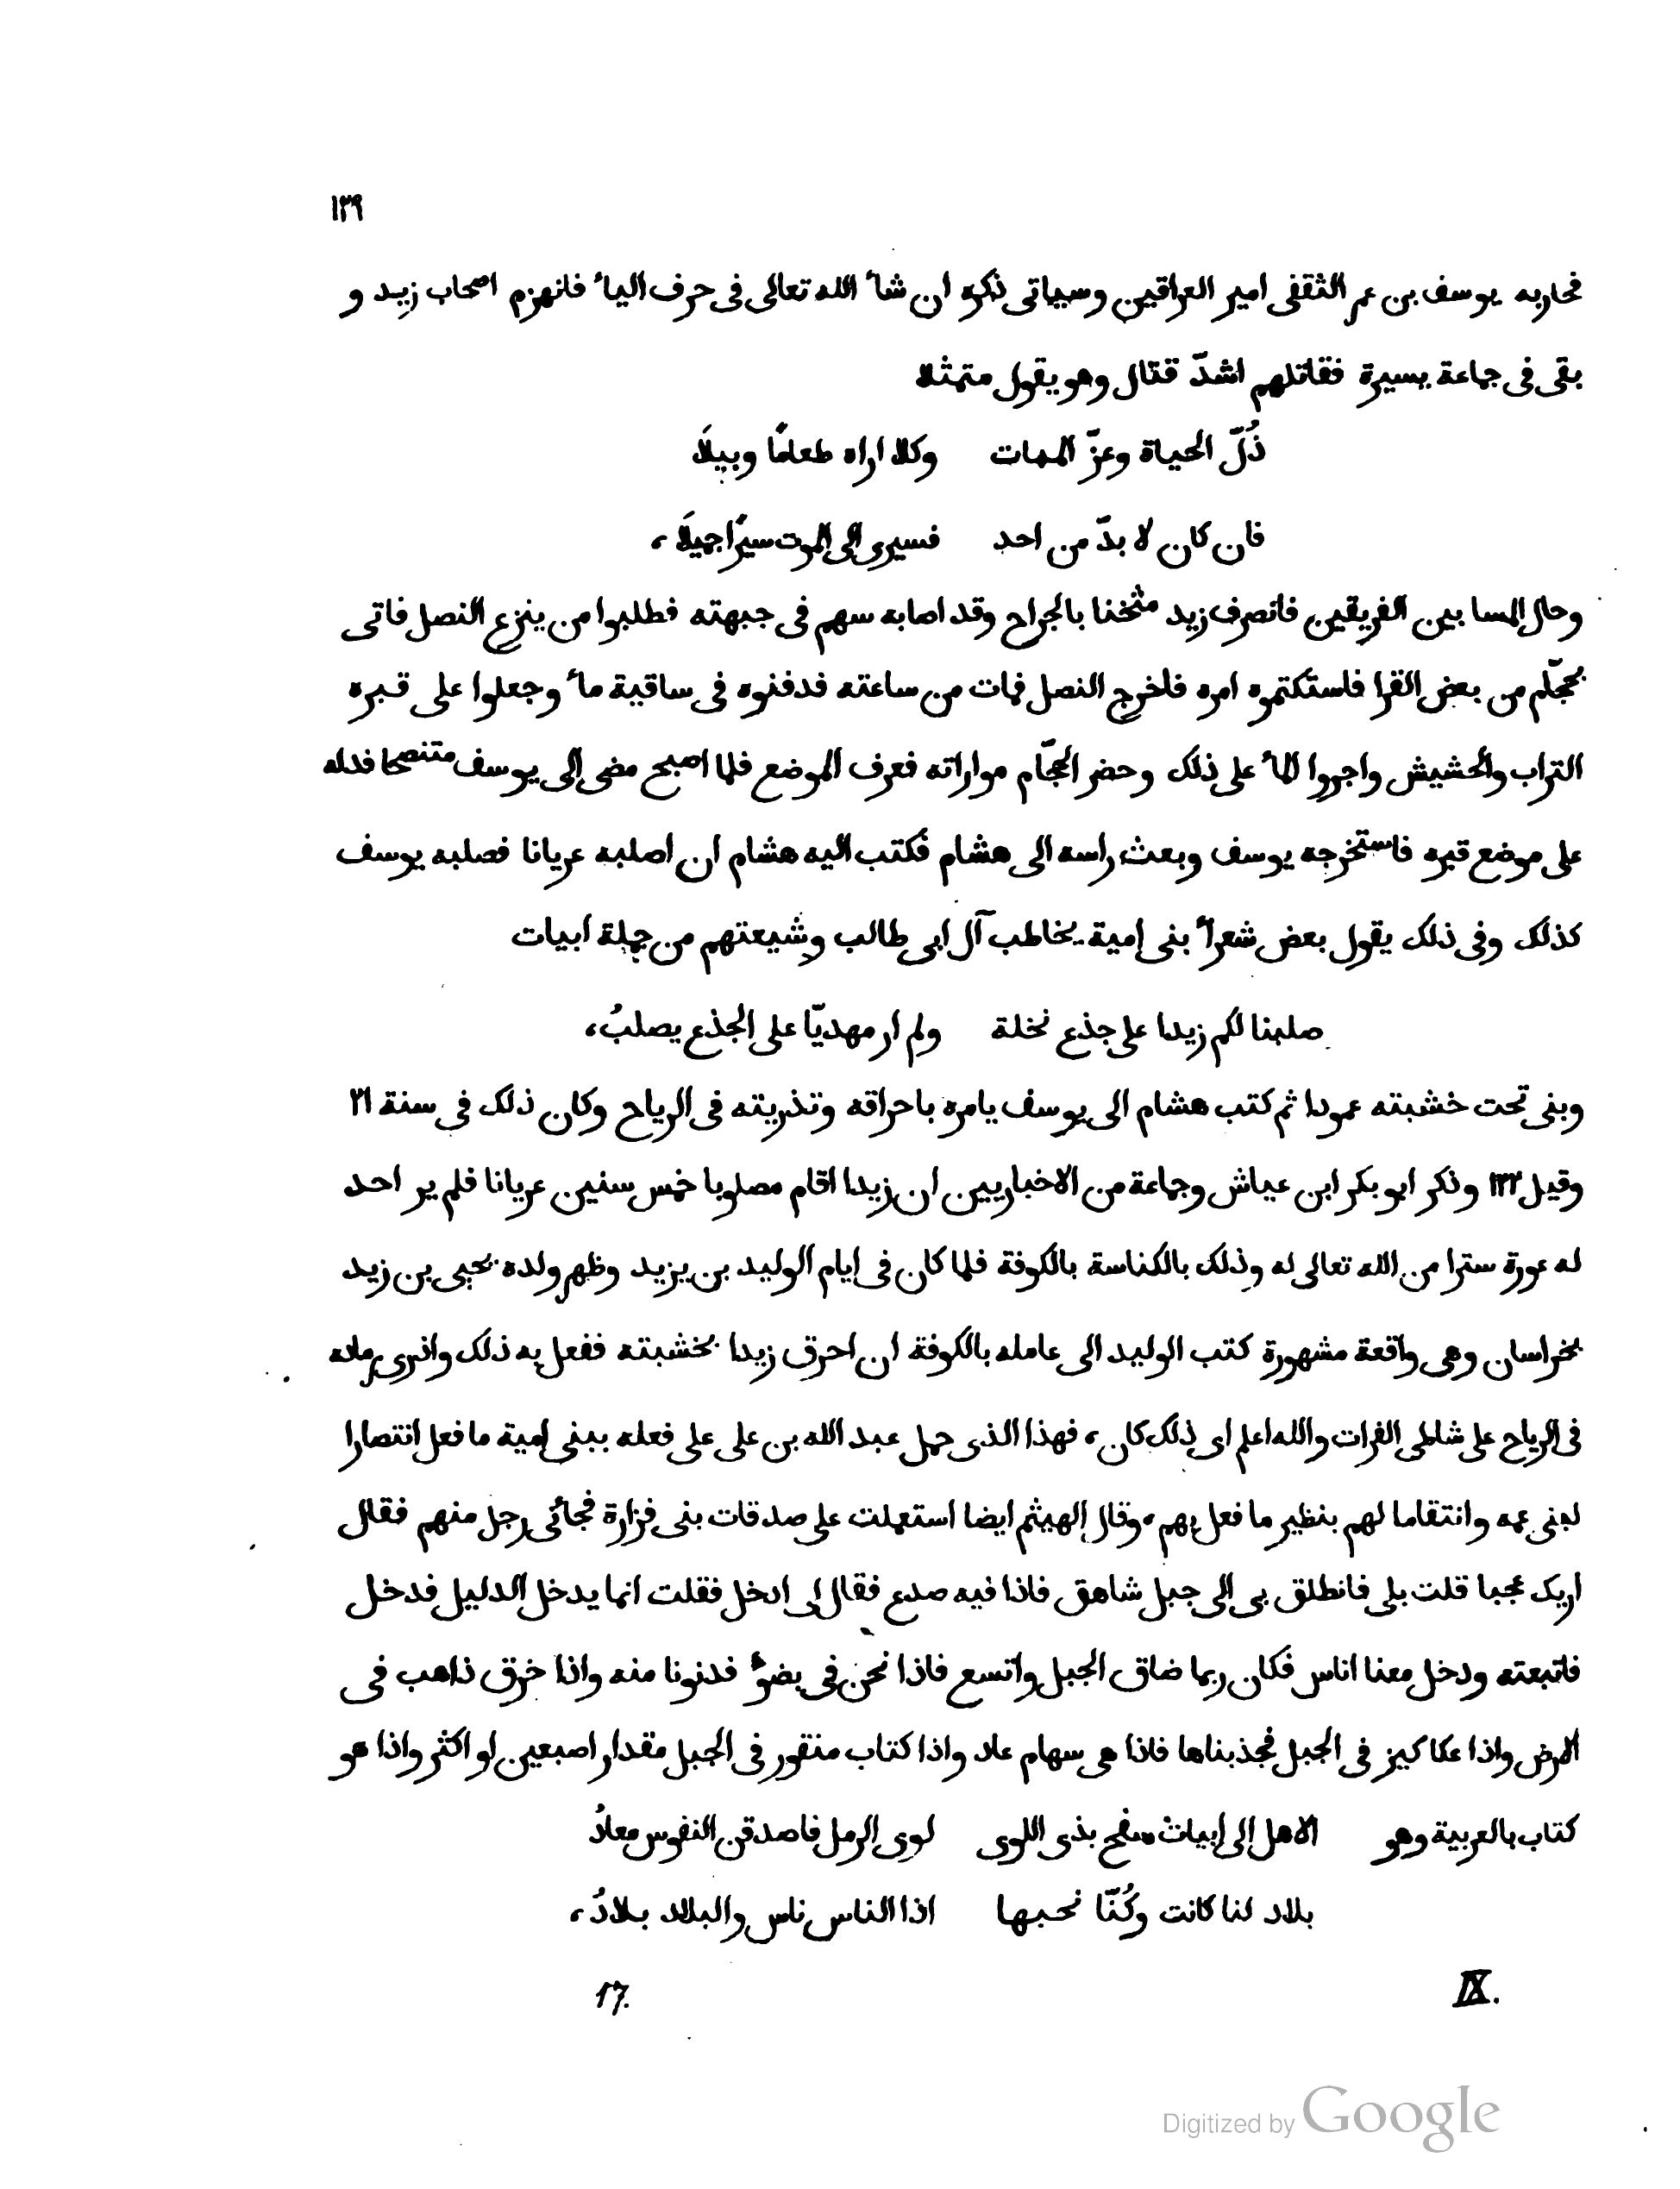 ١٣٩
فحاربه يوسف بن عمر الثقفى امير العراقين وسياتى ذكره ان شأ الله تعالى فى حرف اليأ فانهزم اصحاب زيد و
بقى فى جماعة يسيرة فقاتلهم اشدّ قتال وهو يقول متمثلا
ذُلّ الحياة وعزّ الممات وكلا اراه طعامًا وبيلًا
فان كان لا بدّ من احد فسيرى الى الموت سيرًا جميلًا ،
وحال المسا بين الفريقين فانصرف زيد مثخنا بالجراح وقد اصابه سهم فى جبهته فطلبوا من ينزع النصل فاتى
بحجّام من بعض القرا فاستكتموه امره فاخرج النصل فمات من ساعته فدفنوه فى ساقية مأ وجعلوا على قبره
التراب والحشيش واجروا المأ على ذلك وحضر الحجّام مواراته فعرف الموضع فلما اصبح مضى الى يوسف متنصحا فدله
على موضع قبره فاستخرجه يوسف وبعث راسه الى هشام فكتب اليه هشام ان اصلبه عريانا فصلبه يوسف
كذلك وفى ذلك يقول بعض شعرأ بنى امية يخاطب آل ابى طالب وشيعتهم من جملة ابيات
صلبنا لكم زيدا على جذع نخلة ولم ار مهديّا على الجذع يصلبُ ،
وبنى تحت خشبته عمودا ثم كتب هشام الى يوسف يامره باحراقه وتذريته فى الرياح وكان ذلك فى سنة ٢١
وقيل ١٢٢ وذكر ابو بكر ابن عياش وجماعة من الاخباريين ان زيدا اقام مصلوبا خمس سنين عريانا فلم ير احد
له عورة سترا من الله تعالى له وذلك بالكناسة بالكوفة فلما كان فى ايام الوليد بن يزيد وظهر ولده يحيى بن زيد
بخراسان وهى واقعة مشهورة كتب الوليد الى عامله بالكوفة ان احرق زيدا بخشبته ففعل به ذلك واذرى رماده
فى الرياح على شاطى الفرات والله اعلم اى ذلك كان ، فهذا الذى حمل عبد الله بن على على فعله ببنى امية ما فعل انتصارا
لبنى عمه وانتقاما لهم بنظير ما فعل بهم ، وقال الهيثم ايضا استعملت على صدقات بنى فزارة فجائى رجل منهم فقال
اريك عجبا قلت بلى فانطلق بى الى جبل شاهق فاذا فيه صدع فقال لى ادخل فقلت انما يدخل الدليل فدخل
فاتبعته ودخل معنا اناس فكان ربما ضاق الجبل واتسع فاذا نحن فى بضوٴ فدنونا منه واذا خرق ذاهب فى
الارض واذا عكاكيز فى الجبل فجذبناها فاذا هى سهام عاد واذا كتاب منقور فى الجبل مقدار اصبعين او اكثر واذا هو
كتاب بالعربية وهو الاهل الى ابيات سفح بذى اللوى لوى الرمل فاصدقن النفوس معادُ
بلاد لنا كانت وكُنّا نحبها اذا الناس ناس والبلاد بلادُ ،
IX. 17.
Digitized by Google